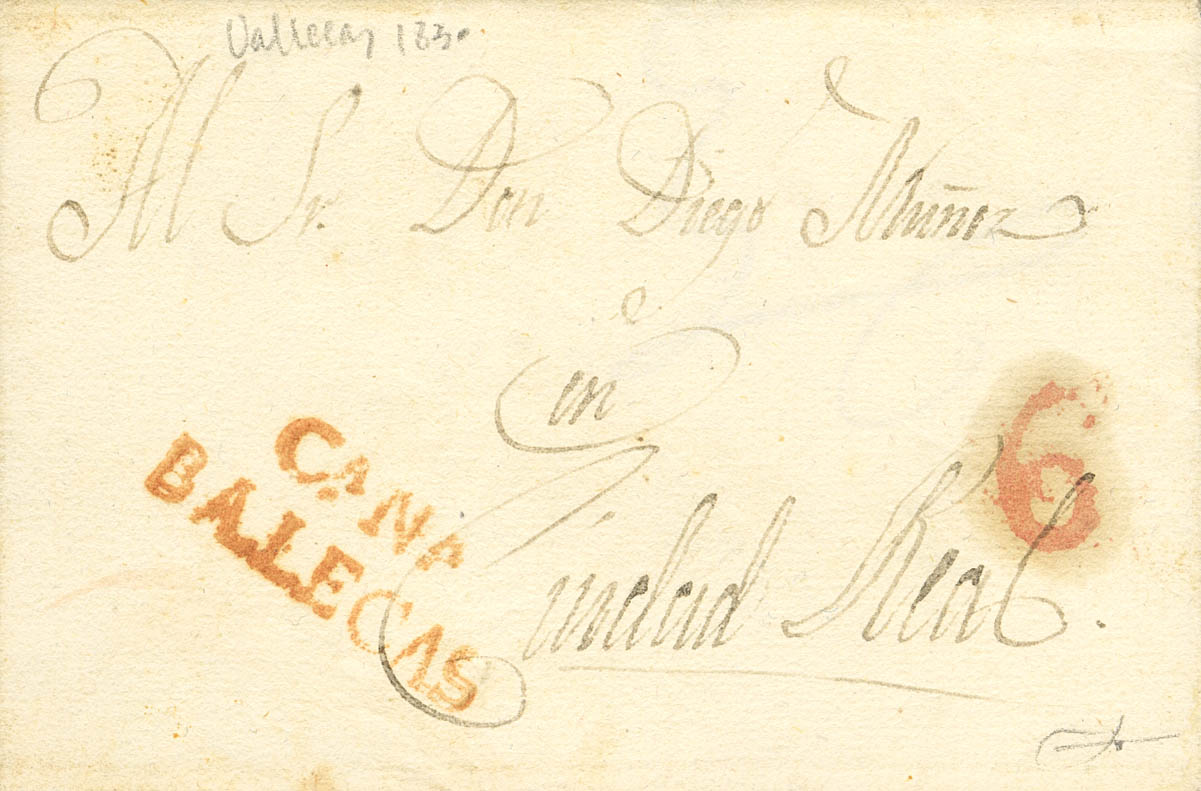 Vallecas 1830
Al Sr. Don Diego Muñoz
en
Ciudad Real.
6
CANA
BALECAS